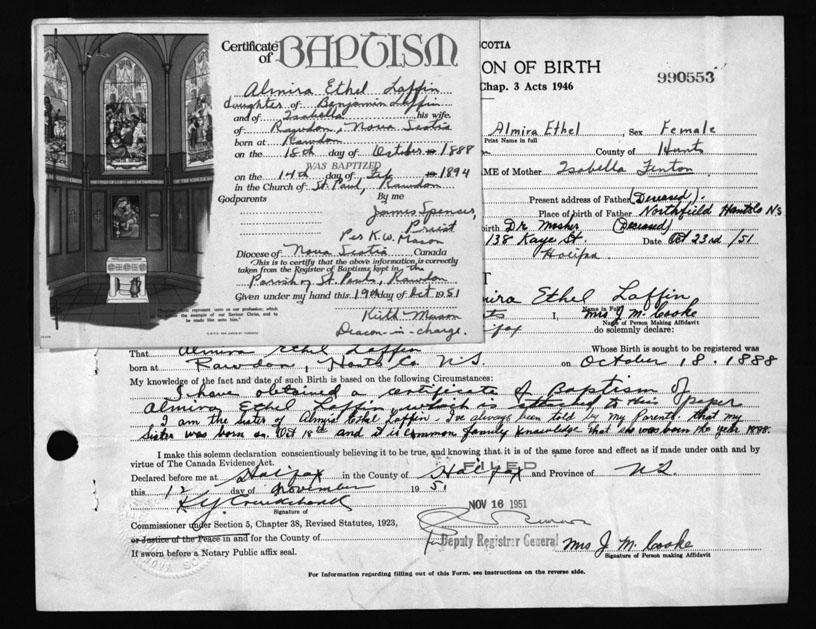 Certificate of BAPTISM
Almira Ethel Laffin
daughter of Benjamin Laffin
and of Isabella his wife.
of Rawdon, Nova Scotia
born at Rawdon
on the 18th day of October 1888
WAS BAPTIZED
on the 14th day of Feb 1894
in the Church of St. Paul, Rawdon
Godparents By me
James Spencer,
Priest
Per K.W. Mason
Diocese of Nova Scotia Canada
This is to certify that the above information is correctly
taken from the Register of Baptisms kept in the
Parish of St. Paul's, Rawdon
Given under my hand this 19th day of Oct 1951
Keith Mason
Deacon-in-charge.
SCOTIA
ON OF BIRTH
990553
Chap. 3 Acts 1946
Almira Ethel, Sex Female
Print Name in full
County of Hants
ME of Mother Isabella Fenton
Present address of Father (Deceased).
Place of birth of Father Northfield Hants Co NS
birth Dr Mosher (Deceased)
138 Kaye St. Date Oct 23rd /51
Halifax
mira Ethel Laffin
Name in Full
I, Mrs J. M. Cooke
Name of Person Making Affidavit
fax do solemnly declare:
That Almira Ethel Laffin Whose Birth is sought to be registered was
born at Rawdon, Hants Co. N.S. on October 18. 1888
My knowledge of the fact and date of such Birth is based on the following Circumstances:
I have obtained a certificate of Baptism of
Almira Ethel Laffin which is attached to this paper
I am the sister of Almira Ethel Laffin I've always been told by my Parents that my
sister was born on Oct 18th and it is common family knowledge that she was born the year 1888.
I make this solemn declaration conscientiously believing it to be true, and knowing that it is of the same force and effect as if made under oath and by
virtue of The Canada Evidence Act.
FILED
Declared before me at Halifax in the County of Halifax and Province of N.S.
this 12 day of November 1951
NOV 16 1951
Signature of
Commissioner under Section 5, Chapter 38, Revised Statutes, 1923,
or Justice of the Peace in and for the County of
Deputy Registrar General
Mrs J. M. Cooke
Signature of Person making Affidavit
If sworn before a Notary Public affix seal.
For Information regarding filling out of this Form, see Instructions on the reverse side.